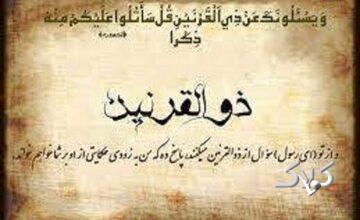 وَيَسْـَٔلُونَكَ عَن ذِي ٱلْقَرْنَيْنِ قُلْ سَأَتْلُوا عَلَيْكُم مِّنْهُ
ذِكْرًا
ذوالقرنین
و از تو (ای رسول) سؤال از ذوالقرنین میکنند، پاسخ ده که من به زودی حکایتی از او بر شما خواهم خواند.